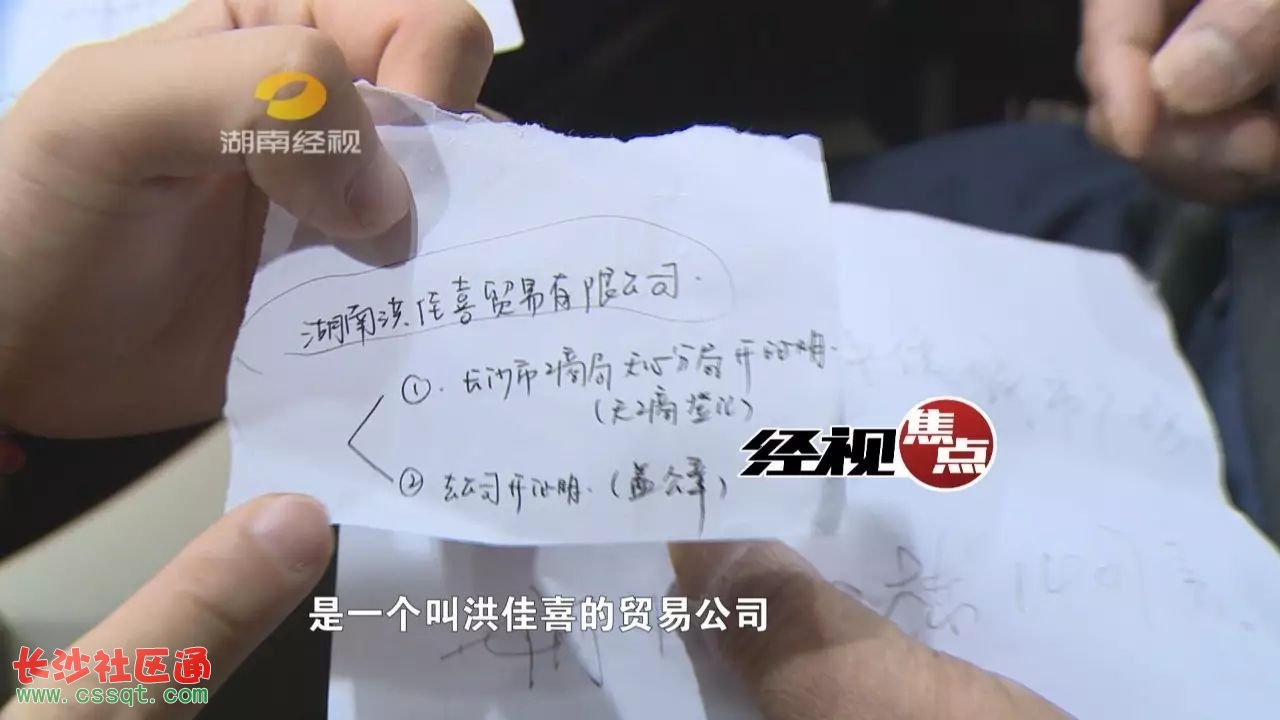 湖南经视
湖南洪佳喜贸易有限公司.
①.长沙市工商局天心分局开证明.
(无工商登记)
②去公司开证明.(盖公章)
经视焦点
是一个叫洪佳喜的贸易公司
长沙社区通
www.cssqt.com